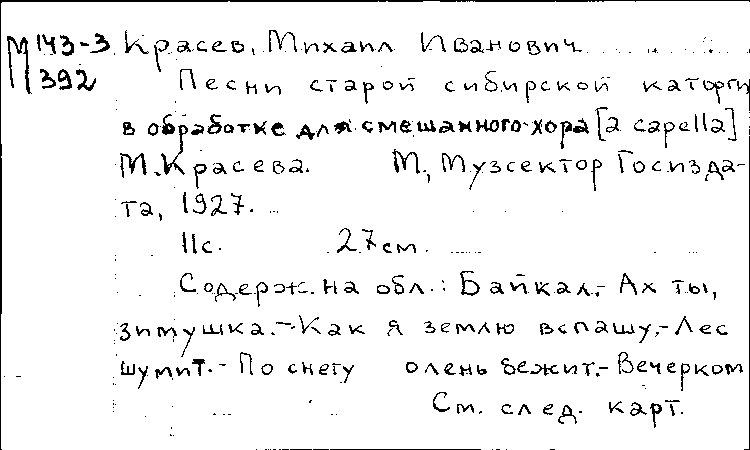 М 143-3 Красев, Михаил Иванович
392 Песни старой сибирской каторги
в обработке для смешанного хора [a capella]
М. Красева. М., Музсектор Госизда-
та, 1927.
11с. 27см.
Содерж. на обл.: Байкал.- Ах ты,
зимушка.- Как я землю вспашу.- Лес
шумит.- По снегу олень бежит.- Вечерком
См. след. карт.